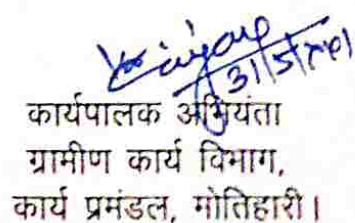 31/5/2021
कार्यपालक अभियंता
ग्रामीण कार्य विभाग,
कार्य प्रमंडल, मोतिहारी।